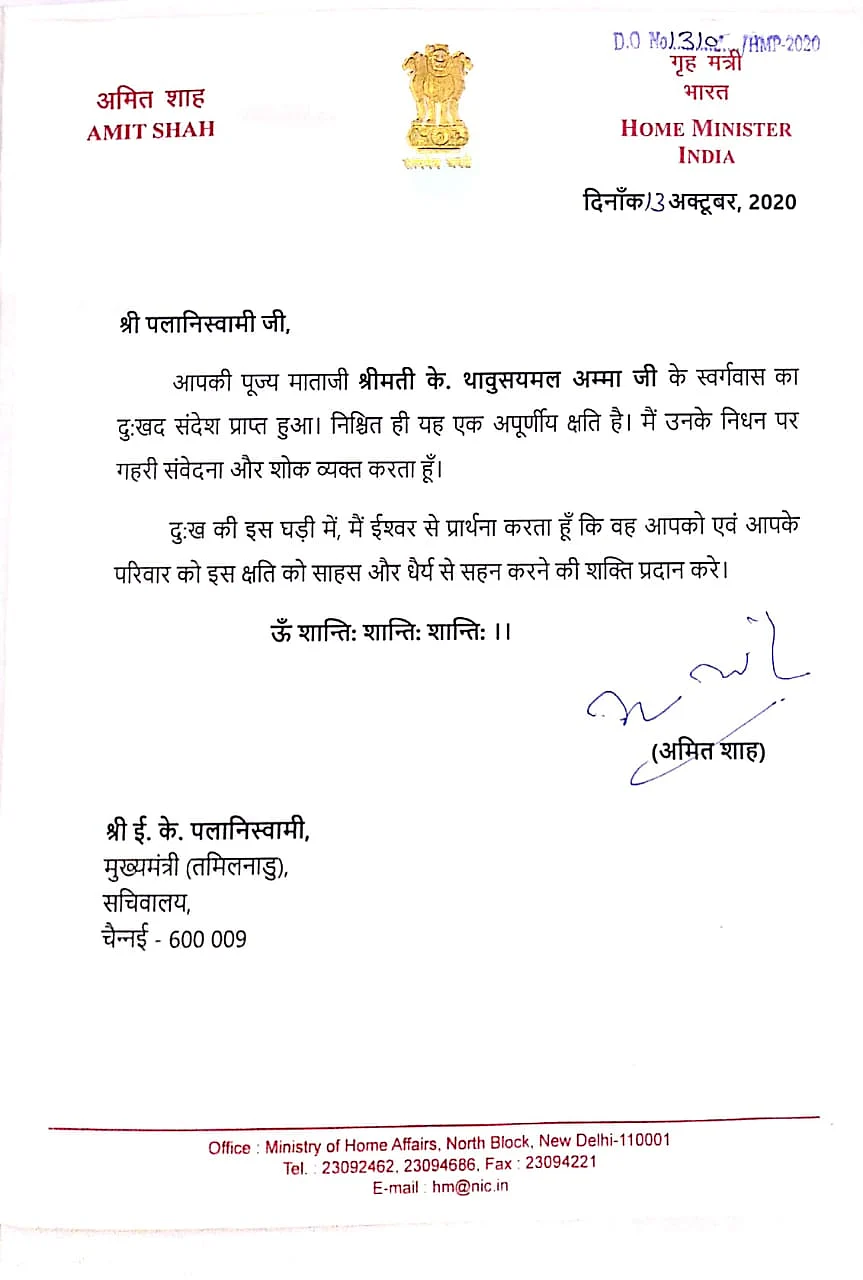 D.O No.1310/HMP-2020
अमित शाह
AMIT SHAH
गृह मंत्री
भारत
HOME MINISTER
INDIA
दिनाँक 13 अक्टूबर, 2020
श्री पलानिस्वामी जी,
आपकी पूज्य माताजी श्रीमती के. थावुसयमल अम्मा जी के स्वर्गवास का
दुःखद संदेश प्राप्त हुआ। निश्चित ही यह एक अपूर्णीय क्षति है। मैं उनके निधन पर
गहरी संवेदना और शोक व्यक्त करता हूँ।
दुःख की इस घड़ी में, मैं ईश्वर से प्रार्थना करता हूँ कि वह आपको एवं आपके
परिवार को इस क्षति को साहस और धैर्य से सहन करने की शक्ति प्रदान करे।
ऊँ शान्ति: शान्ति: शान्ति: ।।
(अमित शाह)
श्री ई. के. पलानिस्वामी,
मुख्यमंत्री (तमिलनाडु),
सचिवालय,
चैन्नई - 600 009
Office : Ministry of Home Affairs, North Block, New Delhi-110001
Tel. : 23092462, 23094686, Fax : 23094221
E-mail : hm@nic.in